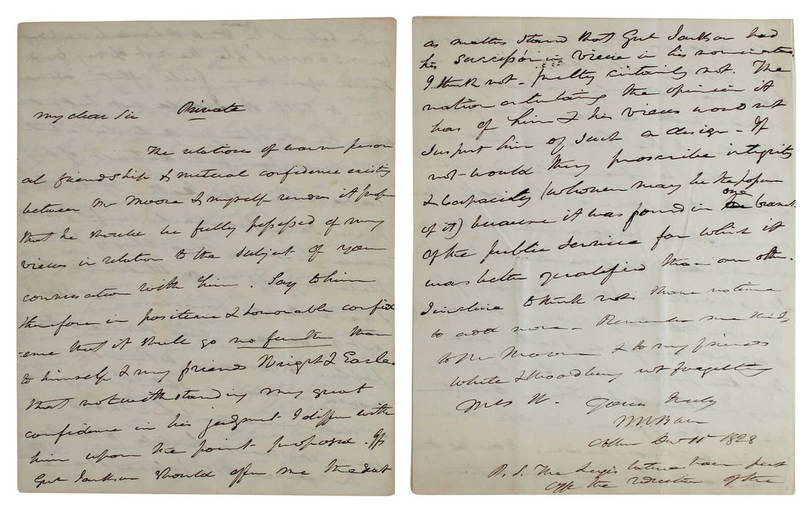 My dear Sir Private
The relations of warm person
al friendship & mutual confidence existing
between Mr Moore & myself renders it proper
that he should be fully possessed of my
views in relation to the subject of your
conversation with him. Say to him
therefore in positive & honorable confid
ence that it shall go no further than
to himself & my friends Wright & Earle
that notwithstanding my great
confidence in his judgment I differ with
him upon the point proposed. If
Genl Jackson should offer me the
as matters stand that Genl Jackson had
his succession in view in his nominations
I think not - pretty certainly not. The
nation entertaining the opinion it
has of him & his views would not
suspect him of such a design - If
not would they proscribe integrity
& capacity (whoever may be the
of it) because it was found in one branch
of the public service for which it
was better qualified than an other.
I incline to think not. Have not time
to add more - Remember me kindly
to Mr Moore & to my friends
White & Woodbury not forgetting
Mrs W. Yours truly
MVBuren
1828
P.S. The Legislature have put
off the election of the